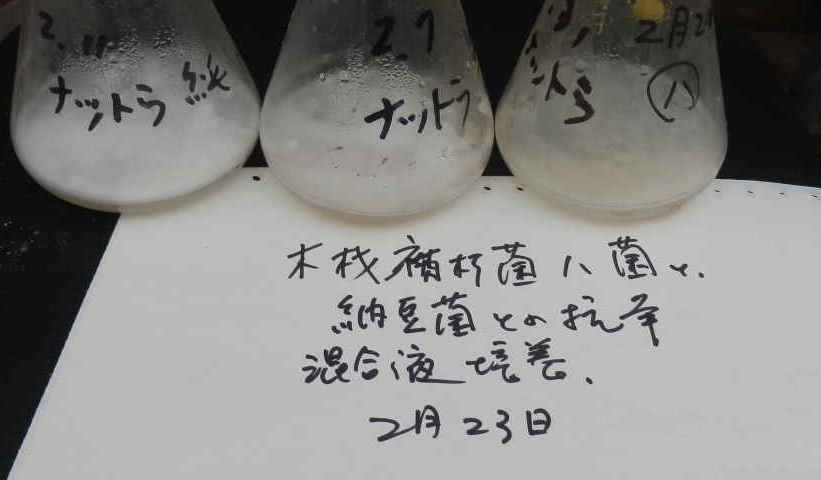 2.11
ナットら 純
2.7
ナットラ
2月2
ハ
木材腐朽菌ハ菌と、
納豆菌との抗争
混合液培養、
2月23日